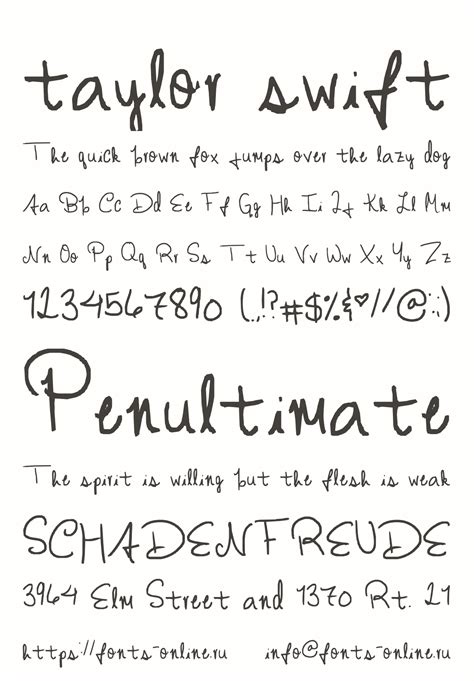 taylor swift
The quick brown fox jumps over the lazy dog
Aa Bb Cc Dd Ee Ff Gg Hh Ii Jj Kk Ll Mm
Nn Oo Pp Qq Rr Ss Tt Uu Vv Ww Xx Yy Zz
1234567890 (.,!?#$%&♥//@:;)
Penultimate
The spirit is willing but the flesh is weak
SCHADENFREUDE
3964 Elm Street and 1370 Rt. 21
https://fonts-online.ru info@fonts-online.ru